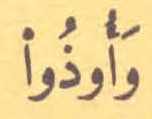 وَأُوذُواْ